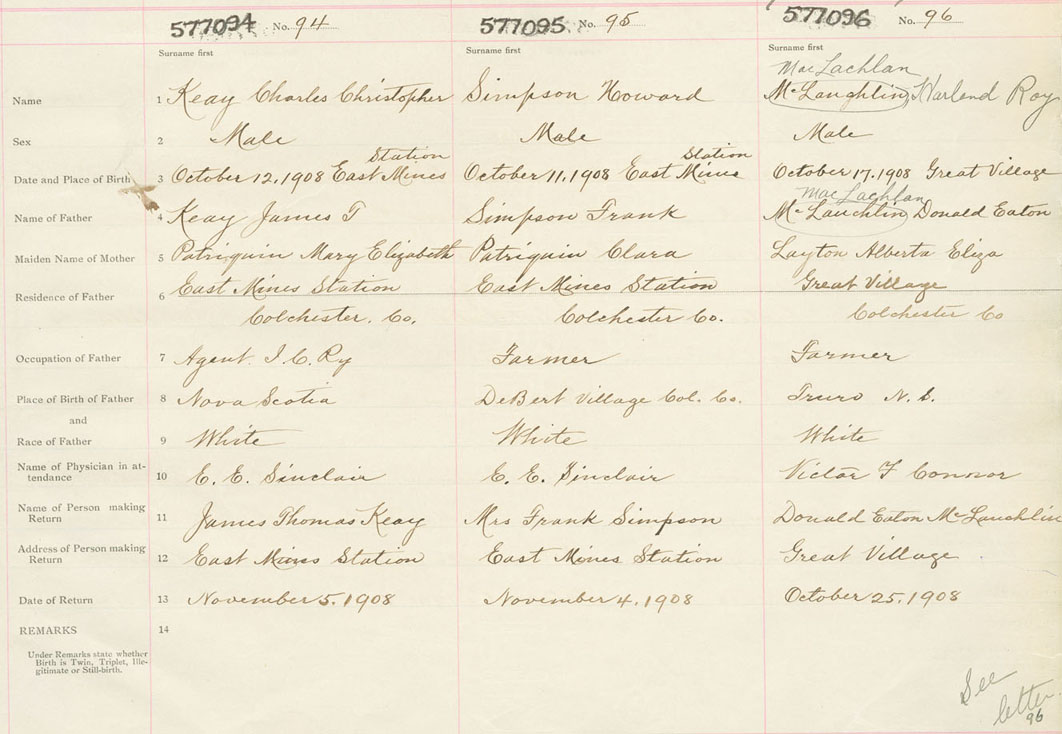 577094 No. 94 577095 No. 95 577096 No. 96
Surname first Surname first Surname first
MacLachlan
Name 1 Keay Charles Christopher Simpson Howard McLaughlin, Harland Roy
Sex 2 Male Male Male
Station Station
Date and Place of Birth 3 October 12, 1908 East Mines October 11, 1908 East Mine October 17, 1908 Great Village
MacLachlan
Name of Father 4 Keay James T Simpson Frank McLauchlin Donald Eaton
Maiden Name of Mother 5 Patriquin Mary Elizabeth Patriquin Clara Layton Alberta Eliza
Residence of Father 6 East Mines Station East Mines Station Great Village
Colchester. Co. Colchester Co. Colchester Co
Occupation of Father 7 Agent I. C. Ry Farmer Farmer
Place of Birth of Father 8 Nova Scotia DeBert Village Col. Co. Truro N. S.
and
Race of Father 9 White White White
Name of Physician in at-
tendance 10 C. E. Sinclair C. E. Sinclair Victor F Connor
Name of Person making
Return 11 James Thomas Keay Mrs Frank Simpson Donald Eaton McLauchlin
Address of Person making
Return 12 East Mines Station East Mines Station Great Village
Date of Return 13 November 5, 1908 November 4, 1908 October 25, 1908
REMARKS 14
Under Remarks state whether
Birth is Twin, Triplet, Ille-
gitimate or Still-birth.
See
letter
96